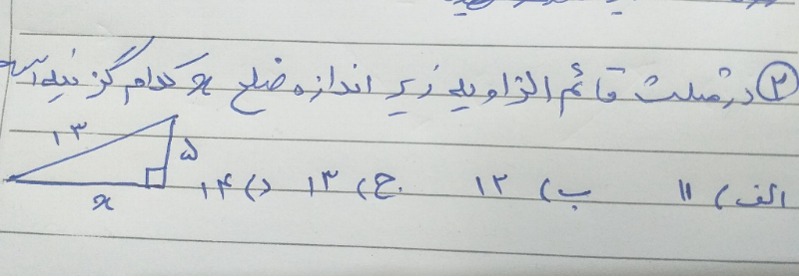 ② در مثلث قائم الزاویه زیر اندازه ضلع x کدام گزینه است
۱۳
۵
x
الف) ۱۱ ب) ۱۲ ج) ۱۳ د) ۱۴